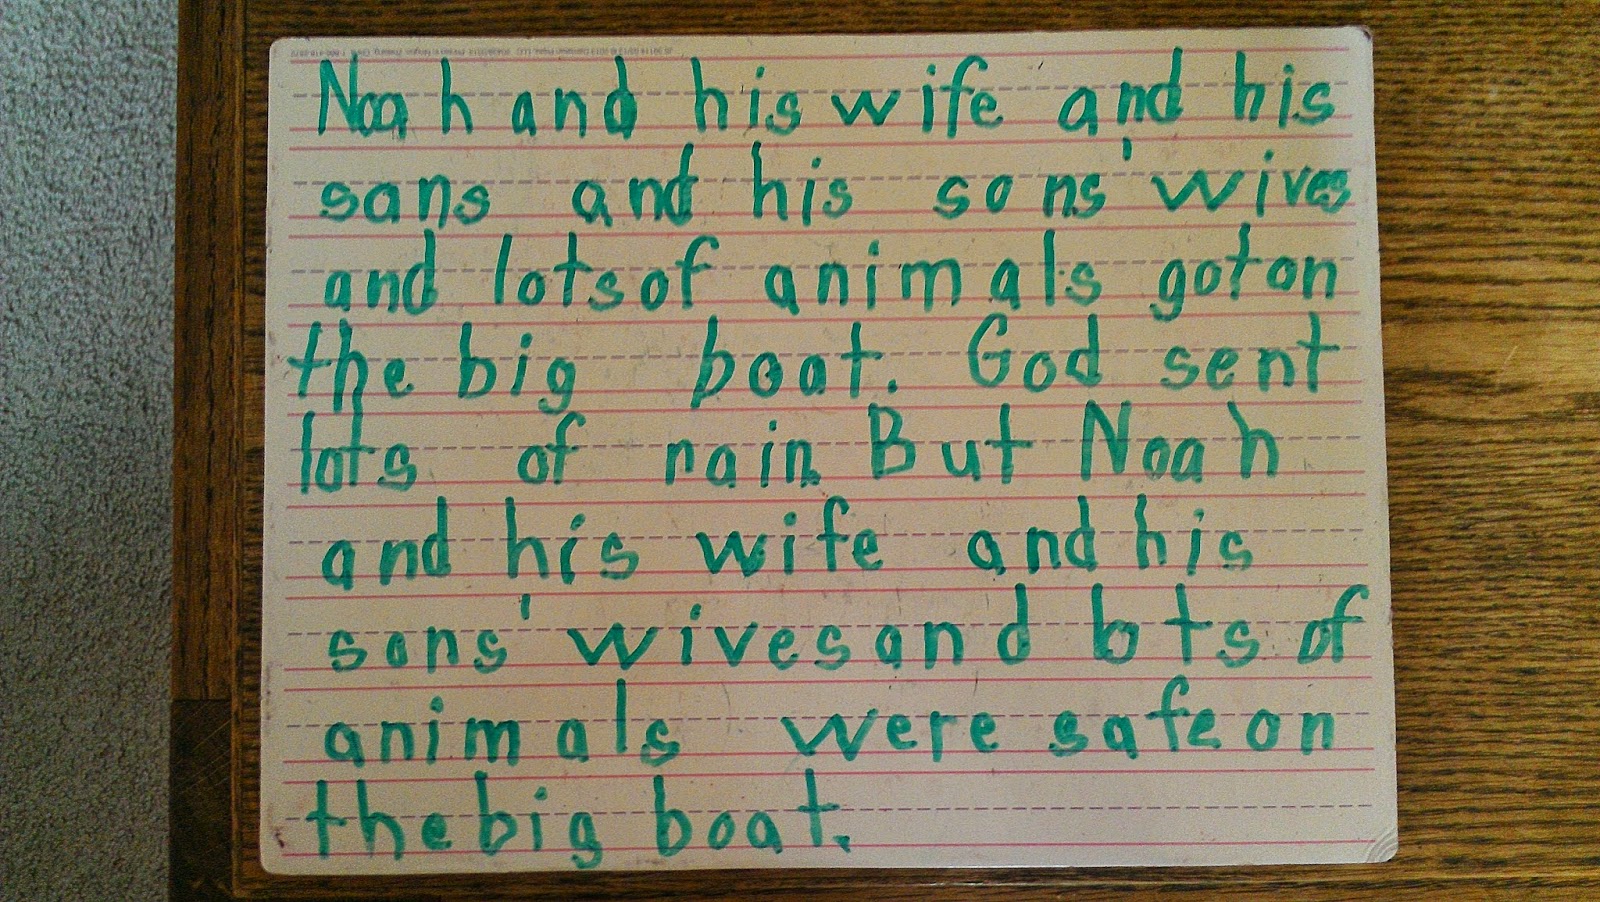 Noah and his wife and his
sons and his sons' wives
and lots of animals got on
the big boat. God sent
lots of rain. But Noah
and his wife and his
sons' wives and lots of
animals were safe on
the big boat.